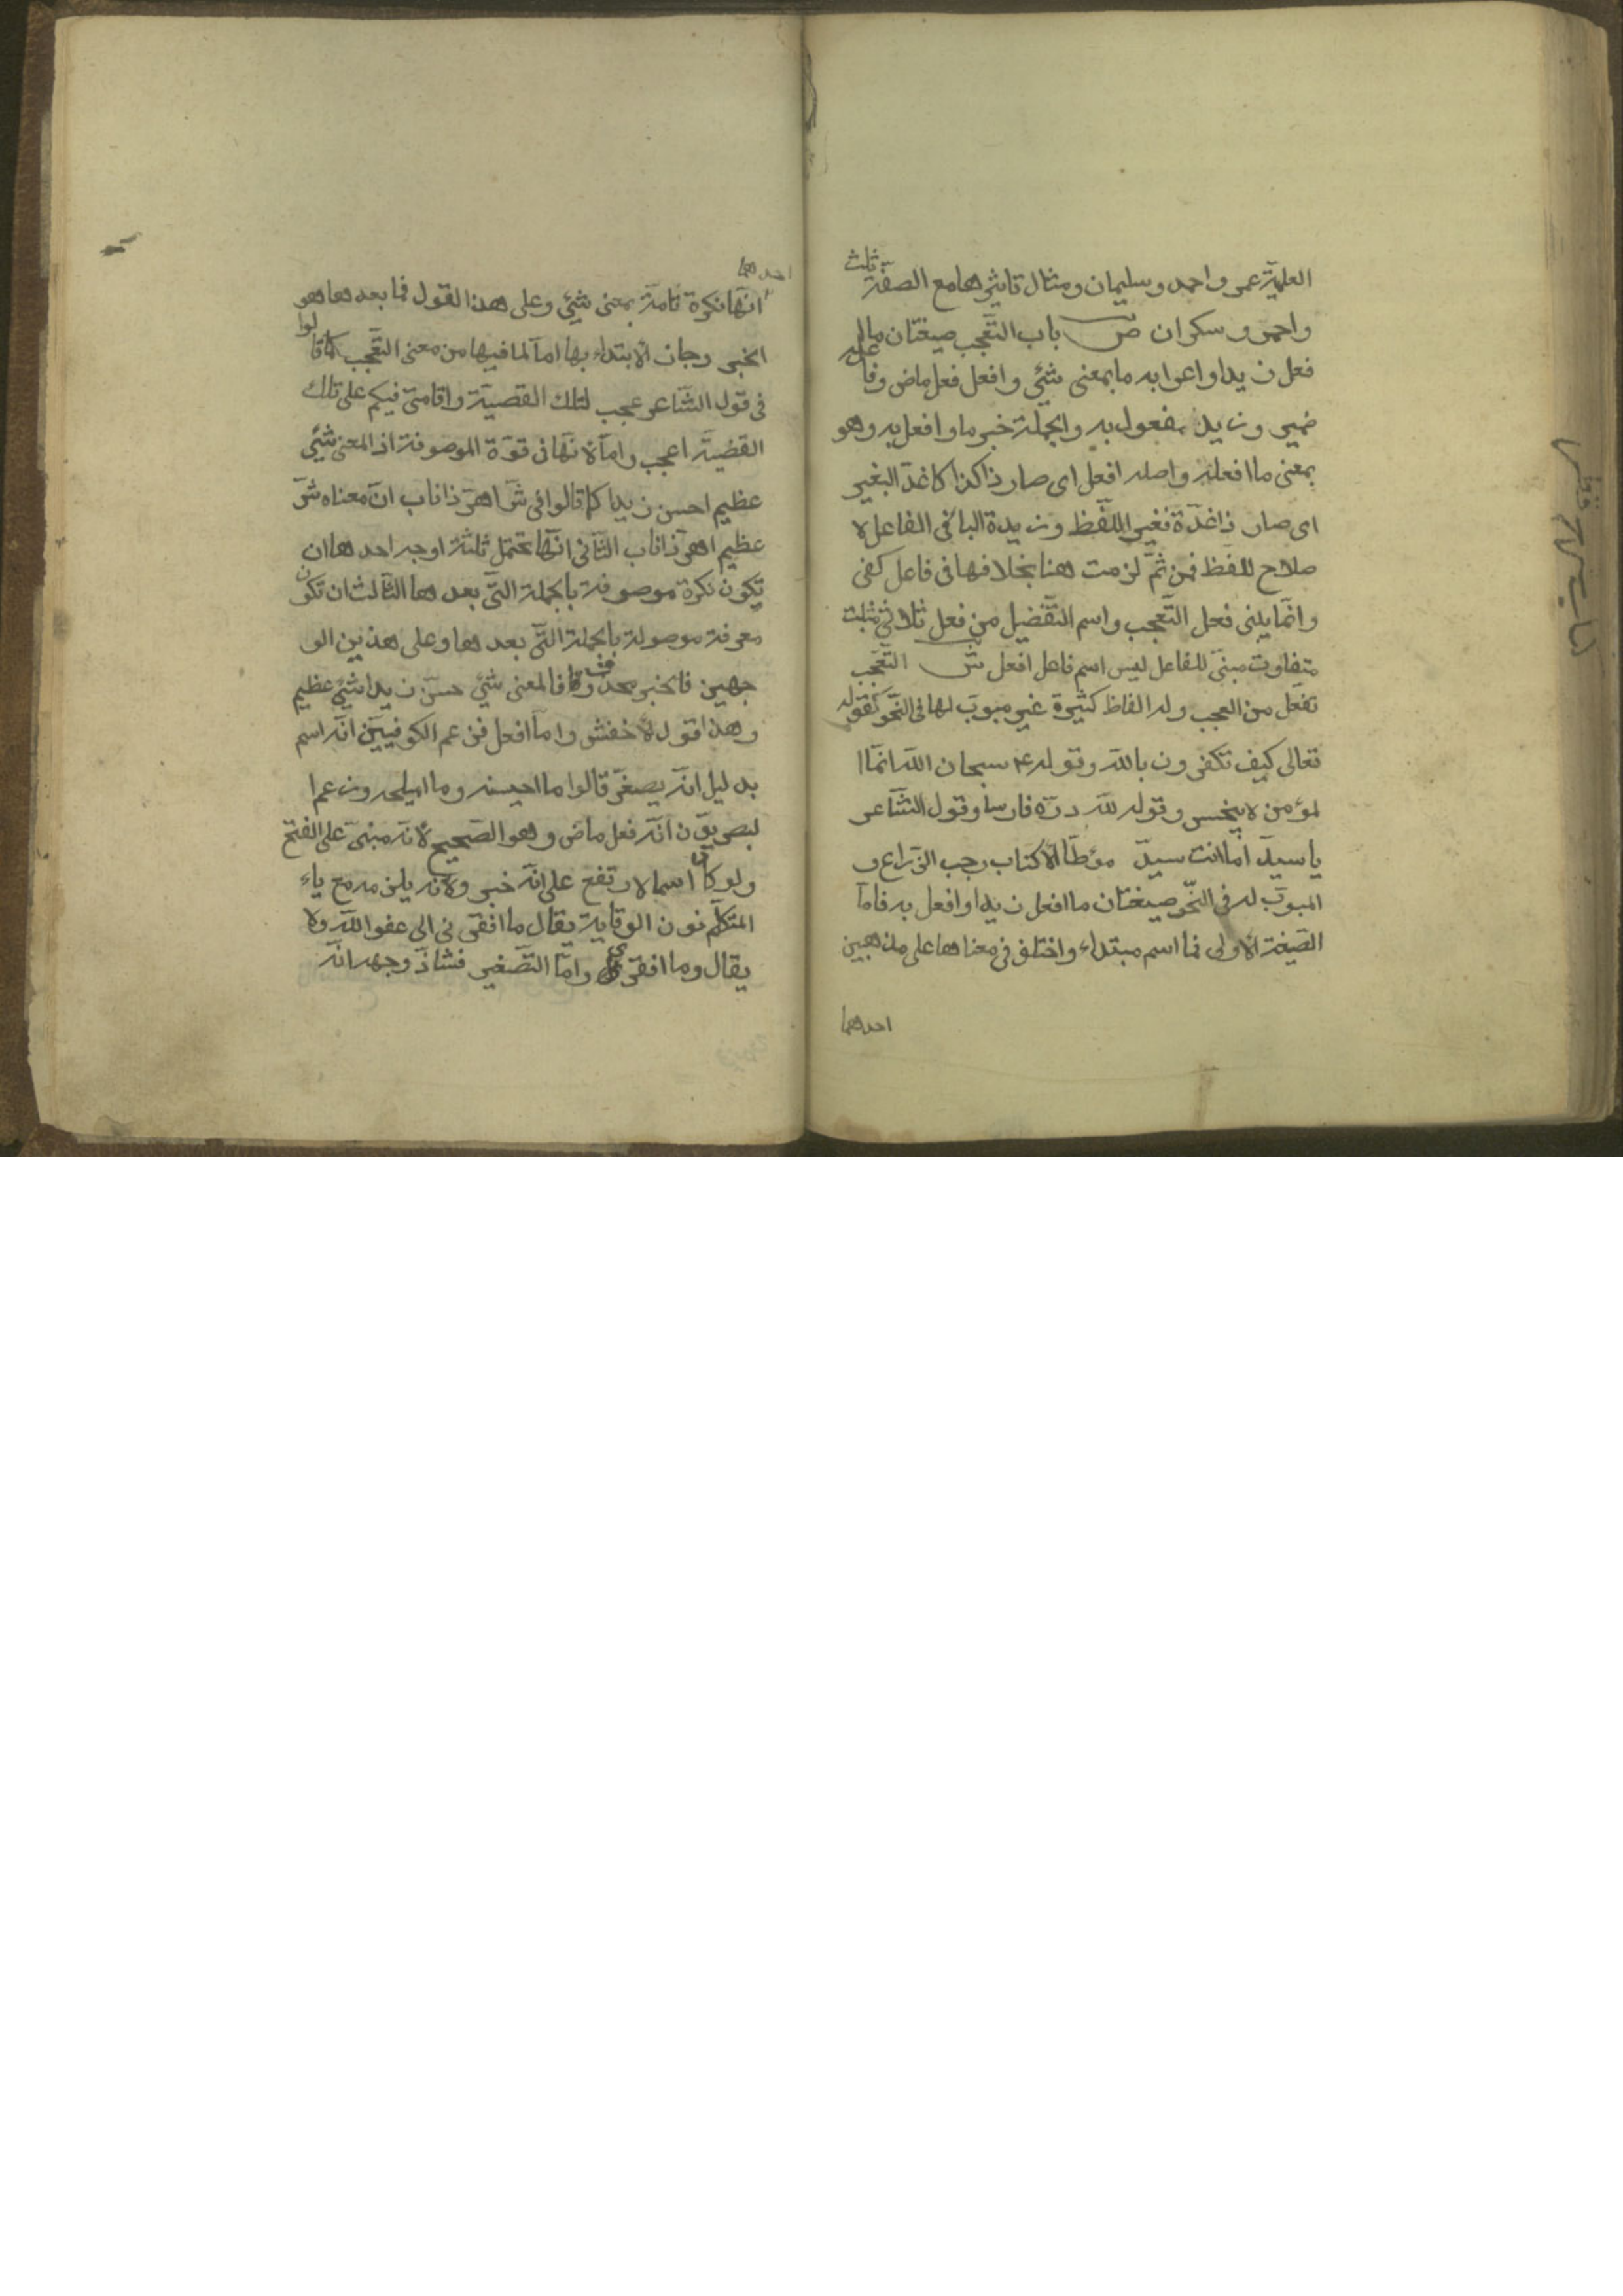 العلميّة عمر واحمد وسليمان ومثال تاثيرها مع الصفة ثلث
واحمر وسكران ص باب التّعجب صيغتان ما ا
فعل زيدا واعرابه ما بمعنى شئي وافعل فعل ماض وفاعله
ضمير وزيد مفعول به والجملة خبر ما وافعل به وهو
بمعنى ما افعله واصله افعل اى صار ذا كذا كاغدّ البغير
اى صار ذا غدّة فغير اللّفظ وزيدة البا فى الفاعل لا
صلاح للفظ فمن ثمّ لزمت هنا بخلافها فى فاعل كفى
وانّما يبنى فعل التّعجب واسم التّفضيل من فعل ثلاثى مثبت
متفاوت مبنىّ للفاعل ليس اسم فاعل افعل ش التّعجّب
تفعّل من العجب وله الفاظ كثيرة غير مبوّب لها فى النّحو كقوله
تعالى كيف تكفرون باللّه وقوله ع سبحان اللّه انّما ا
لمؤمن لا ينجس وقوله للّه درّه فارسا وقول الشّاعر
يا سيدّ اما انت سيدّ موطّا الاكتاب رجب الزّراع و
المبوّب له فى النّحو صيغتان ما افعل زيدا وافعل به فامّا
الصّيغة الاولى فما اسم مبتداء واختلف فى معناها على مذهبين
احدهما
احدهما
انّها نكرة تامّة بمعنى شئي وعلى هذا القول فما بعدها هو
الخبر وجاز الابتداء بها امّا لما فيها من معنى التّعجب كما قالوا
فى قول الشّاعر عجب لتلك القضيّة واقامتى فيكم على تلك
القضيّة اعجب وامّا لانّها فى قوّة الموصوفة اذ المعنى شئي
عظيم احسن زيدا كما قالوا فى شّر اهرّ ذا ناب انّ معناه شرّ
عظيم اهرّ ذا ناب الثّانى انّها تحتمل ثلثة اوجه احدها ان
تكون نكرة موصوفة بالجملة التّى بعدها الثّالث ان تكون
معرفة موصولة بالجملة التّى بعدها وعلى هذين الو
جهين فالخبر محذوف فالمعنى شئي حسّن زيدا شئي عظيم
وهذا قول لاخفش وامّا افعل فزعم الكوفييّن انّه اسم
بدليل انّه يصغّر قالوا ما احيسنه وما اميلحه وزعم ا
لبصريوّن انّه فعل ماض وهو الصّحيح لانّه مبنىّ على الفتح
ولو كان اسما لارتفع على انّه خبر ولانّه يلزمه مع ياء
المتكلّم نون الوقاية يقال ما افقرنى الى عفو اللّه ولا
يقال وما افقرى وامّا التّصغير فشاذّ وجهه انّه